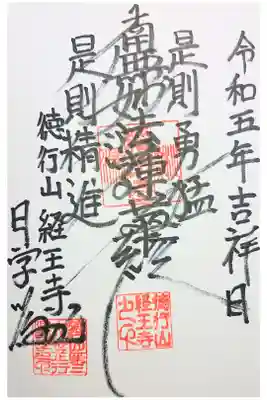 令和五年吉祥日
是則勇猛
南無妙法蓮華経
是則精進
徳行山 経王寺
徳行山
経王寺